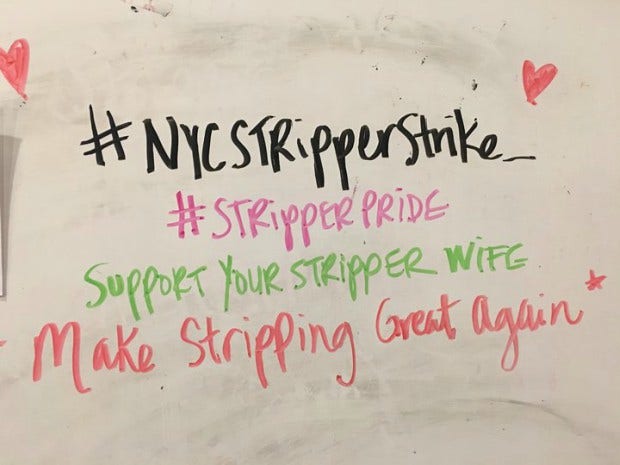 #NYCSTRipperStrike_
#STRipperPRIDE
SUPPORT YOUR STRIPPER WIFE
- Make Stripping Great Again*